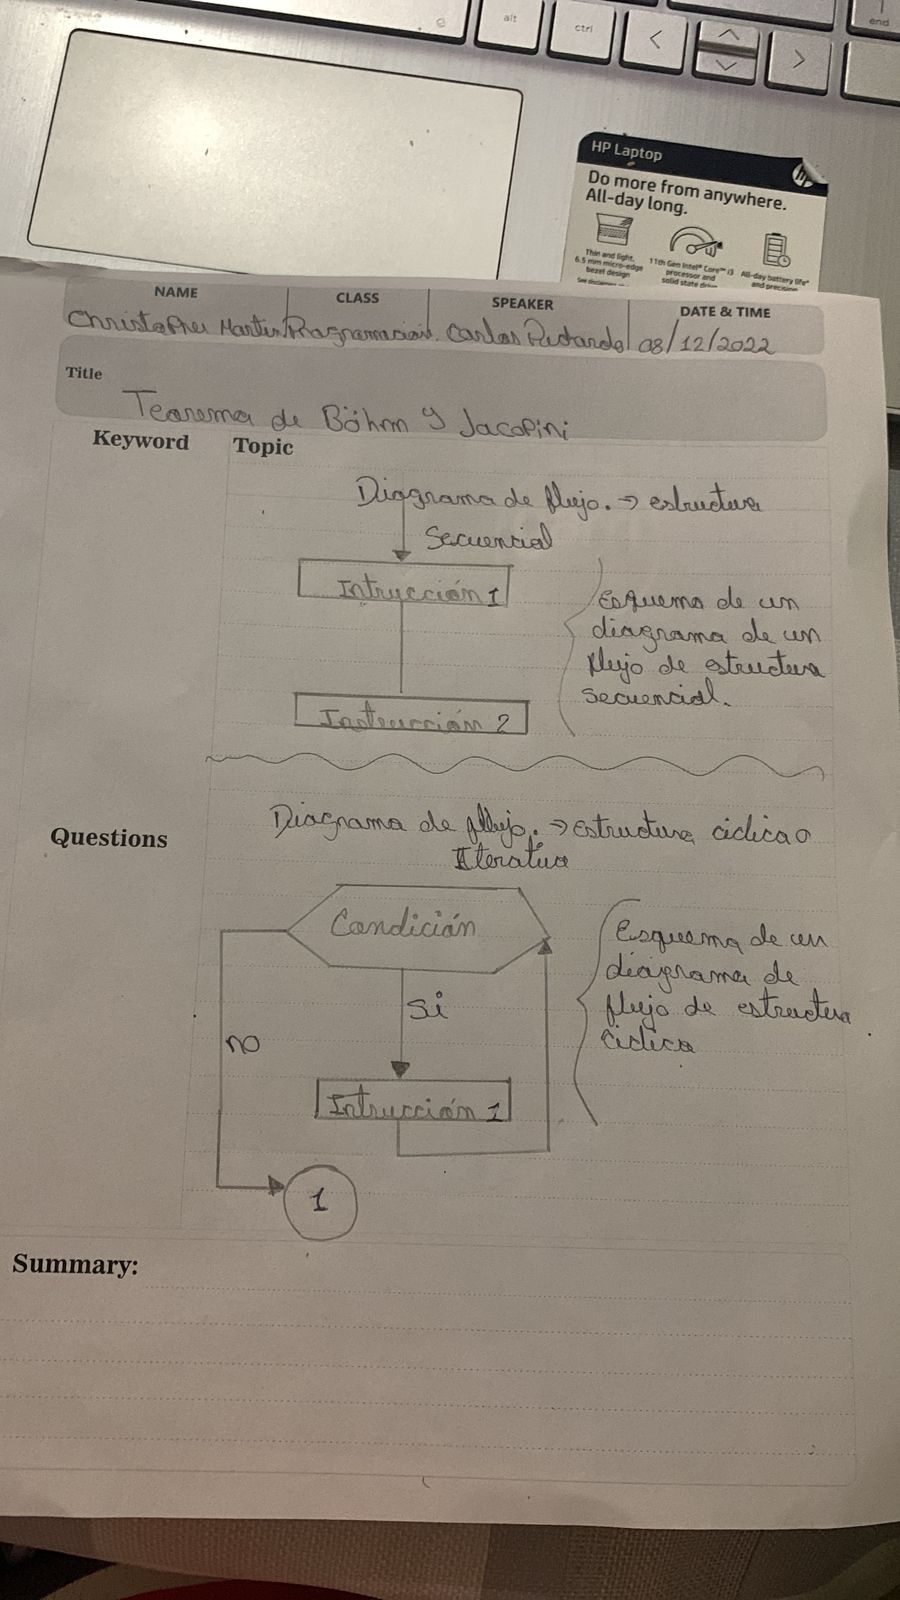 end
alt
ctrl
HP Laptop
hp
Do more from anywhere.
All-day long.
Thin and light,
6.5 mm micro-edge
bezel design
11th Gen Intel® Core™ i3
processor and
solid state drive
All-day battery life*
and precision
NAME CLASS SPEAKER DATE & TIME
Christopher Programación Carlos 08/12/2022
Title
Teorema de Böhm y Jacopini
Keyword Topic
Diagrama de flujo. → estructura
Secuencial
Intrucción 1
Esquema de un
diagrama de un
flujo de estructura
secuencial.
Instrucción 2
Questions
Diagrama de flujo. → estructura ciclica o
Iterativa
Condición
Esquema de un
diagrama de
flujo de estructura
ciclica
si
no
Intrucción 1
1
Summary: